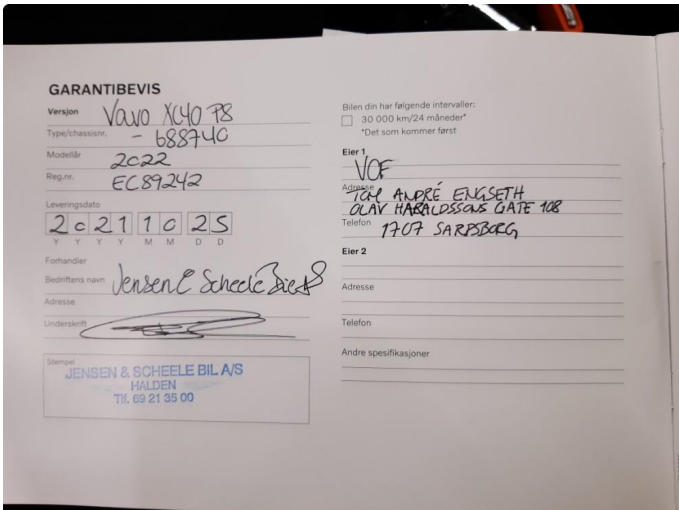 GARANTIBEVIS
Versjon Volvo XC40 P8
Type/chassisnr. - 688740
Modellår 2022
Reg.nr. EC89242
Leveringsdato
2021 10 25
Y Y Y Y M M D D
Forhandler
Bedriftens navn Jensen & Scheele Bil AS
Adresse
Underskrift
Stempel
JENSEN & SCHEELE BIL A/S
HALDEN
Tlf. 69 21 35 00
Bilen din har følgende intervaller:
30 000 km/24 måneder*
*Det som kommer først
Eier 1
VCF
Adresse TOM ANDRÉ ENGSETH
OLAV HARALDSSONS GATE 108
Telefon 1707 SARPSBORG
Eier 2
Adresse
Telefon
Andre spesifikasjoner